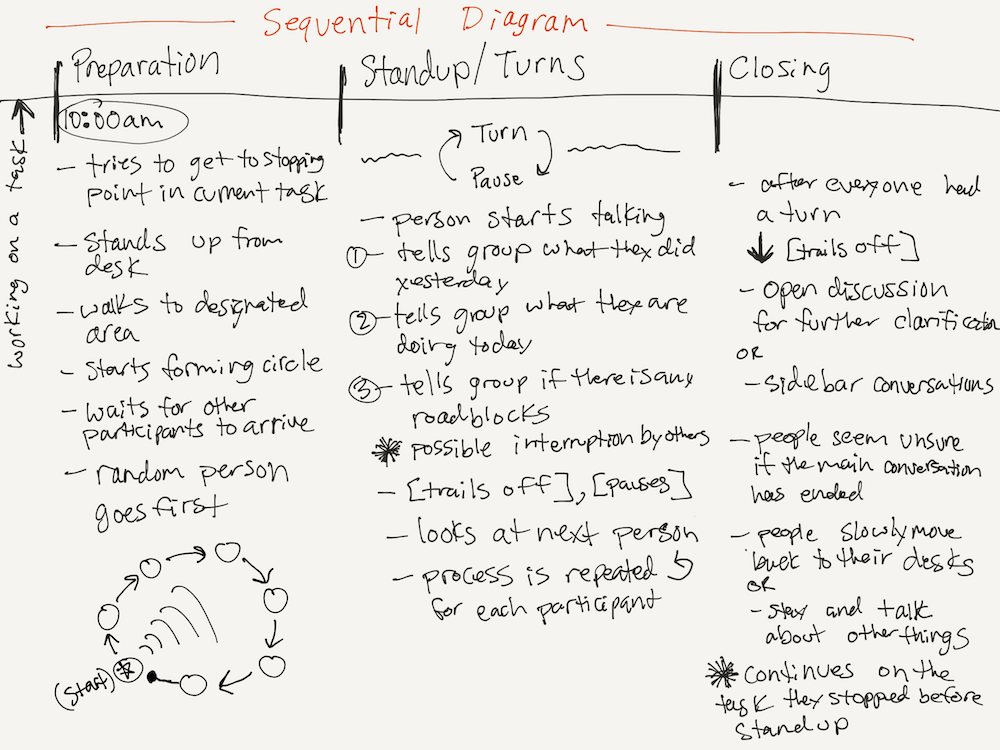 Sequential Diagram
Preparation
10:00am
working on a task
- tries to get to stopping
point in current task
- Stands up from
desk
- walks to designated
area
- Starts forming circle
- waits for other
participants to arrive
- random person
goes first
(start)
Standup/Turns
Turn
Pause
- person starts talking
① - tells group what they did
yesterday
② - tells group what they are
doing today
③ - tells group if there is any
roadblocks
* possible interruption by others
- [trails off], [pauses]
- looks at next person
- process is repeated
for each participant
Closing
- after everyone had
a turn
↓ [trails off]
- open discussion
for further clarification
OR
- sidebar conversations
- people seem unsure
if the main conversation
has ended
- people slowly move
back to their desks
OR
- stay and talk
about other things
* continues on the
task they stopped before
standup